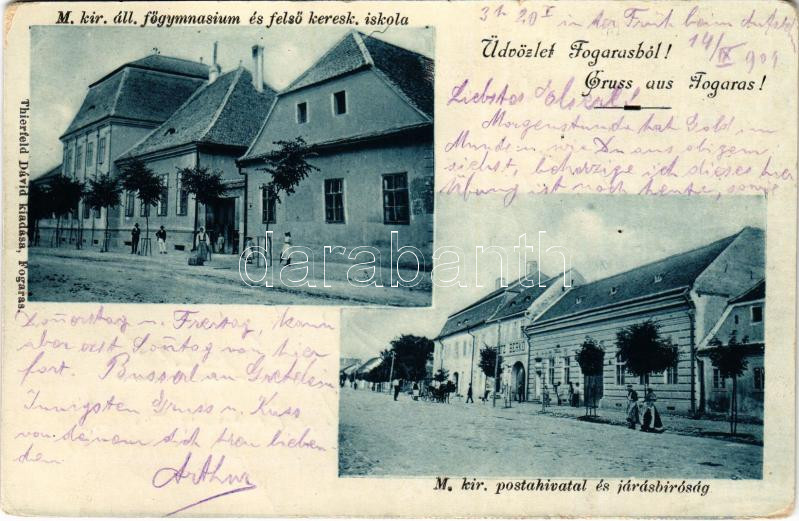 M. kir. áll. főgymnasium és felső keresk. iskola
3h 20 in der Früh beim
14/IX 904
Üdvözlet Fogarasból!
Gruss aus Fogaras!
Liebster
Morgenstunde hat Gold im
Munde, wie Du aus obigem
siehst, beherzige ich dieses
Übung ist noch heute, sowie
Thierfeld Dávid kiadása, Fogaras.
darabanth
BERKO
Donnerstag u. Freitag, kann
aber erst Sonntag von hier
fort. Busserl an Gretelein
Innigsten Gruss u. Kuss
von deinem dich treu lieben
den
Arthur
M. kir. postahivatal és járásbiróság